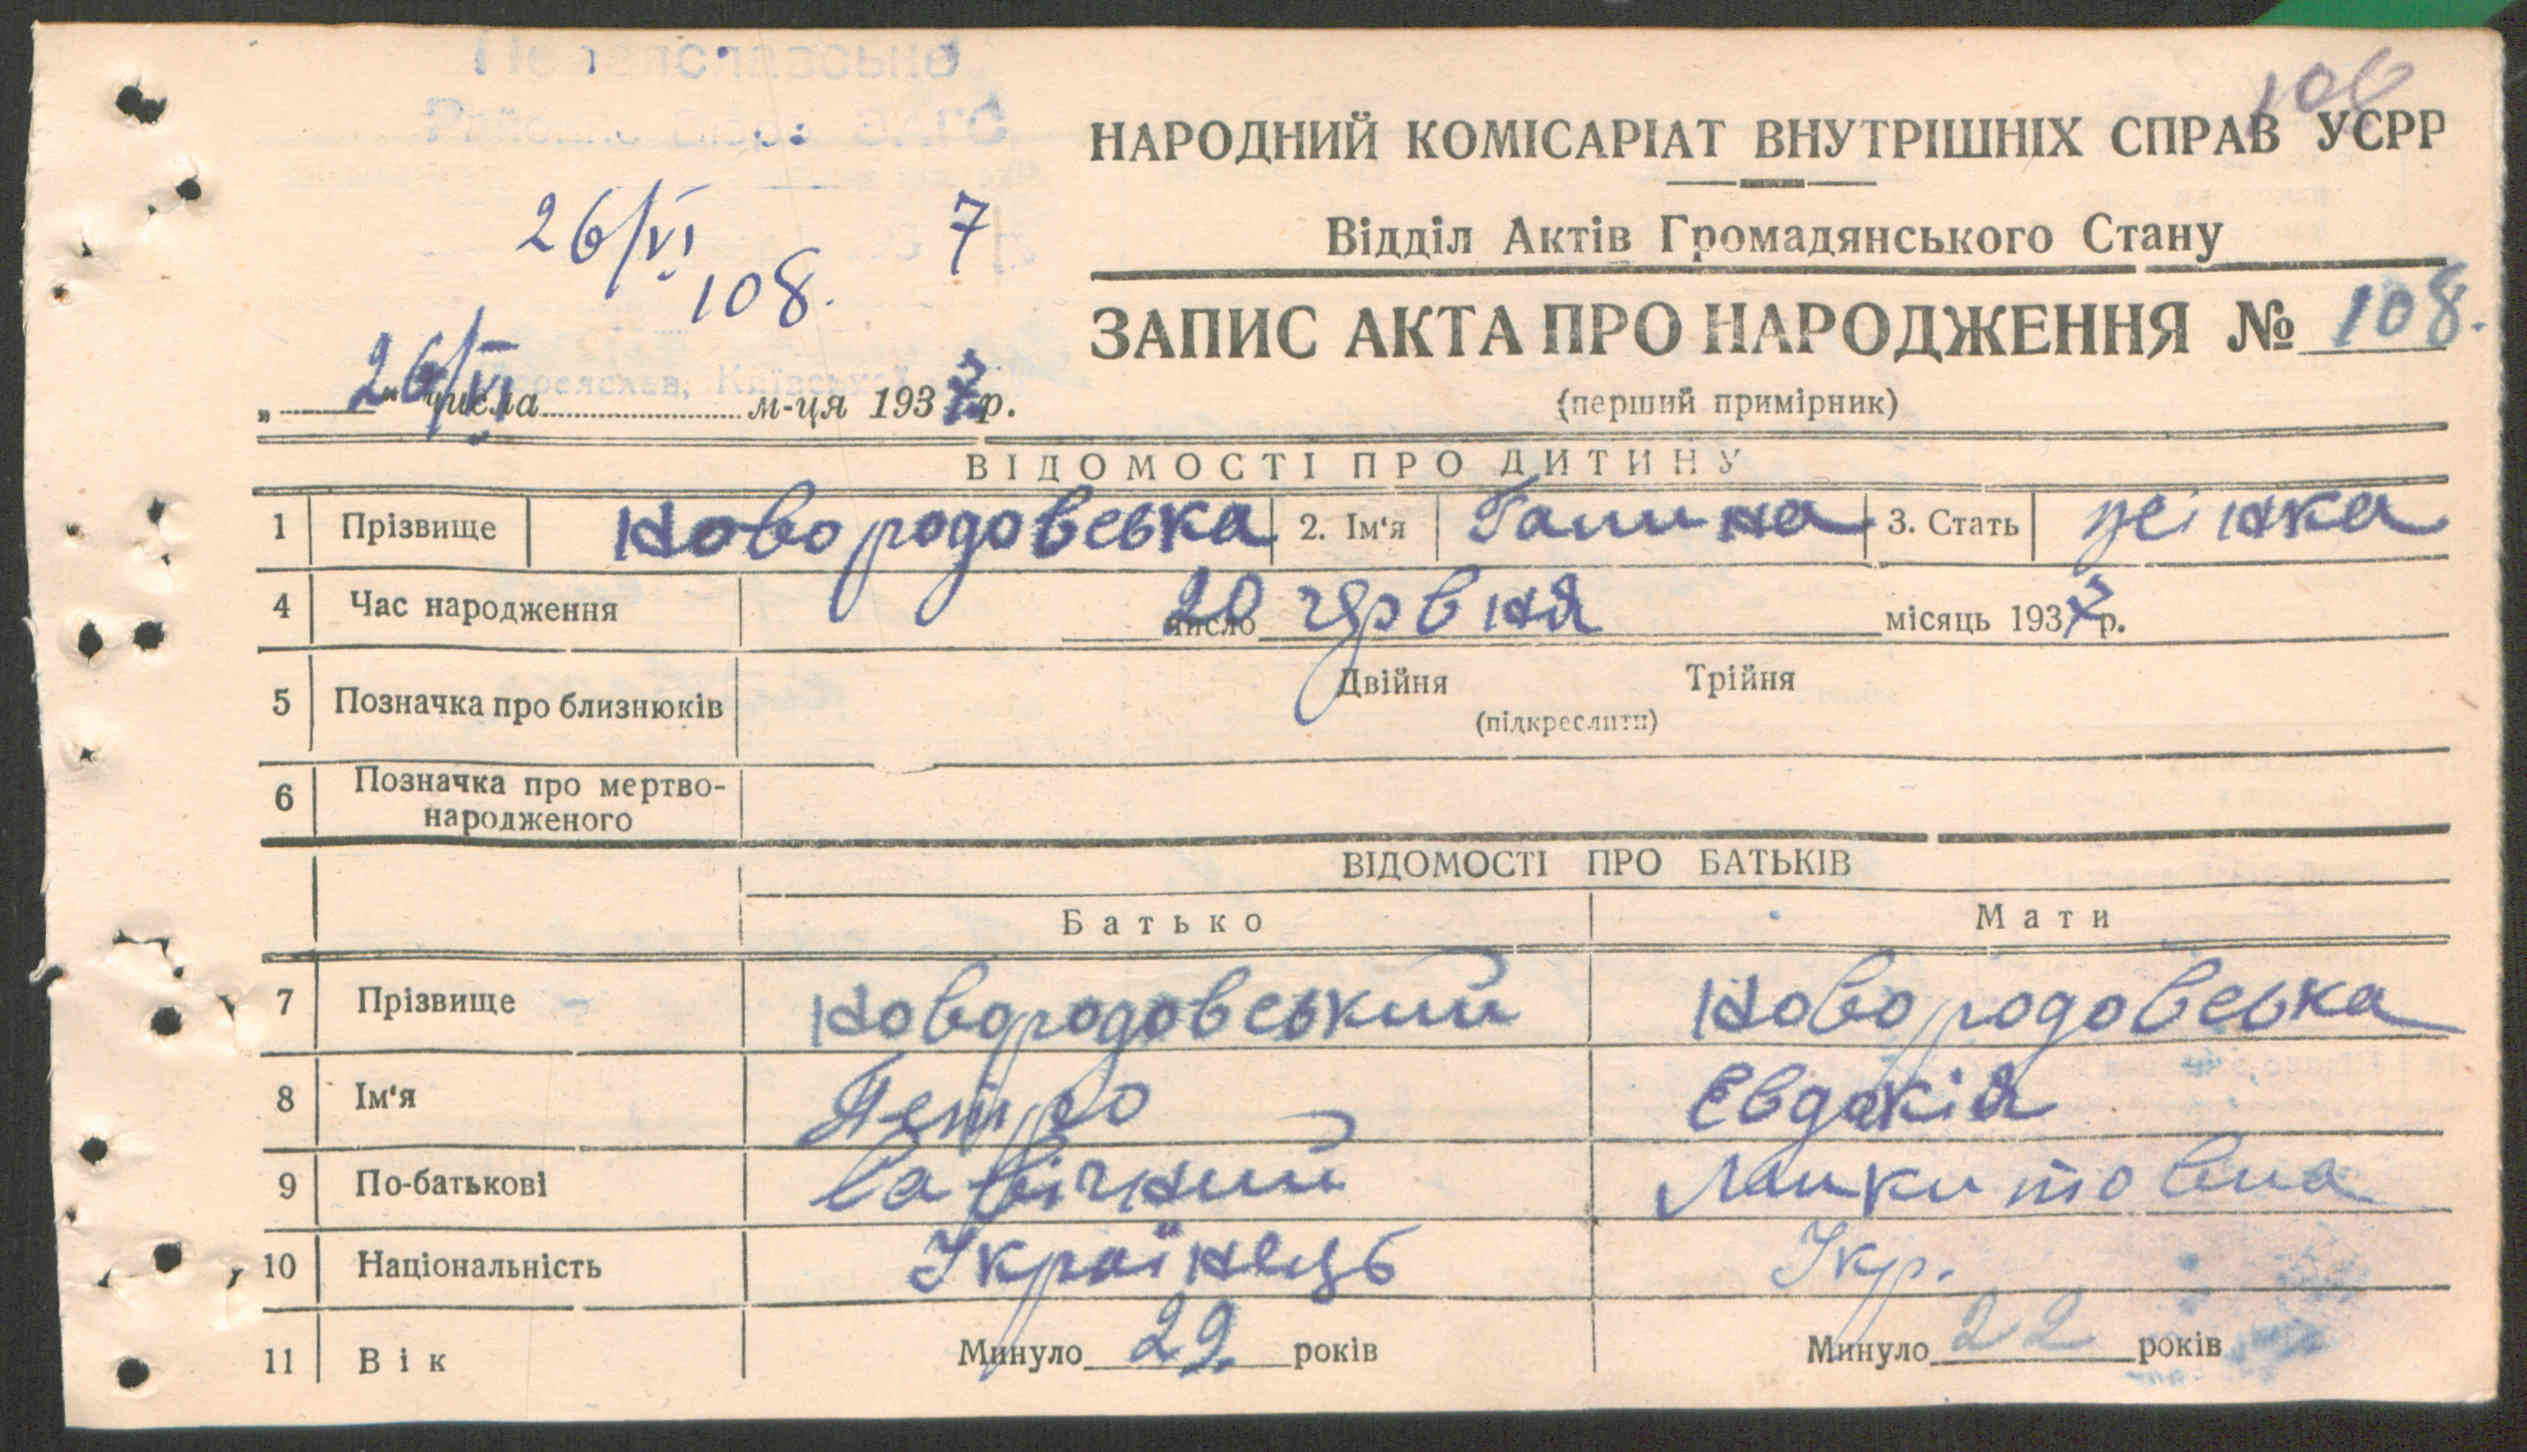 106
НАРОДНИЙ КОМІСАРІАТ ВНУТРІШНІХ СПРАВ УСРР
Відділ Актів Громадянського Стану
26/VI 7
108.
ЗАПИС АКТА ПРО НАРОДЖЕННЯ № 108.
(перший примірник)
„ 26/VI “ числа м-ця 1937 р.
ВІДОМОСТІ ПРО ДИТИНУ
1 Прізвище Новородовська 2. Ім'я Галина 3. Стать жінка
4 Час народження 20 число червня місяць 1937 р.
5 Позначка про близнюків Двійня Трійня
(підкреслити)
6 Позначка про мертво-
народженого
ВІДОМОСТІ ПРО БАТЬКІВ
Батько Мати
7 Прізвище Новородовський Новородовська
8 Ім'я Петро Евдокія
9 По-батькові
10 Національність Українець Укр.
11 Вік Минуло 29 років Минуло 22 років